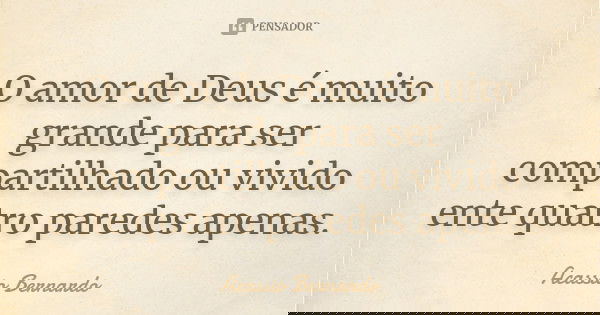 PENSADOR
O amor de Deus é muito
grande para ser
compartilhado ou vivido
ente quatro paredes apenas.
Acassio Bernardo